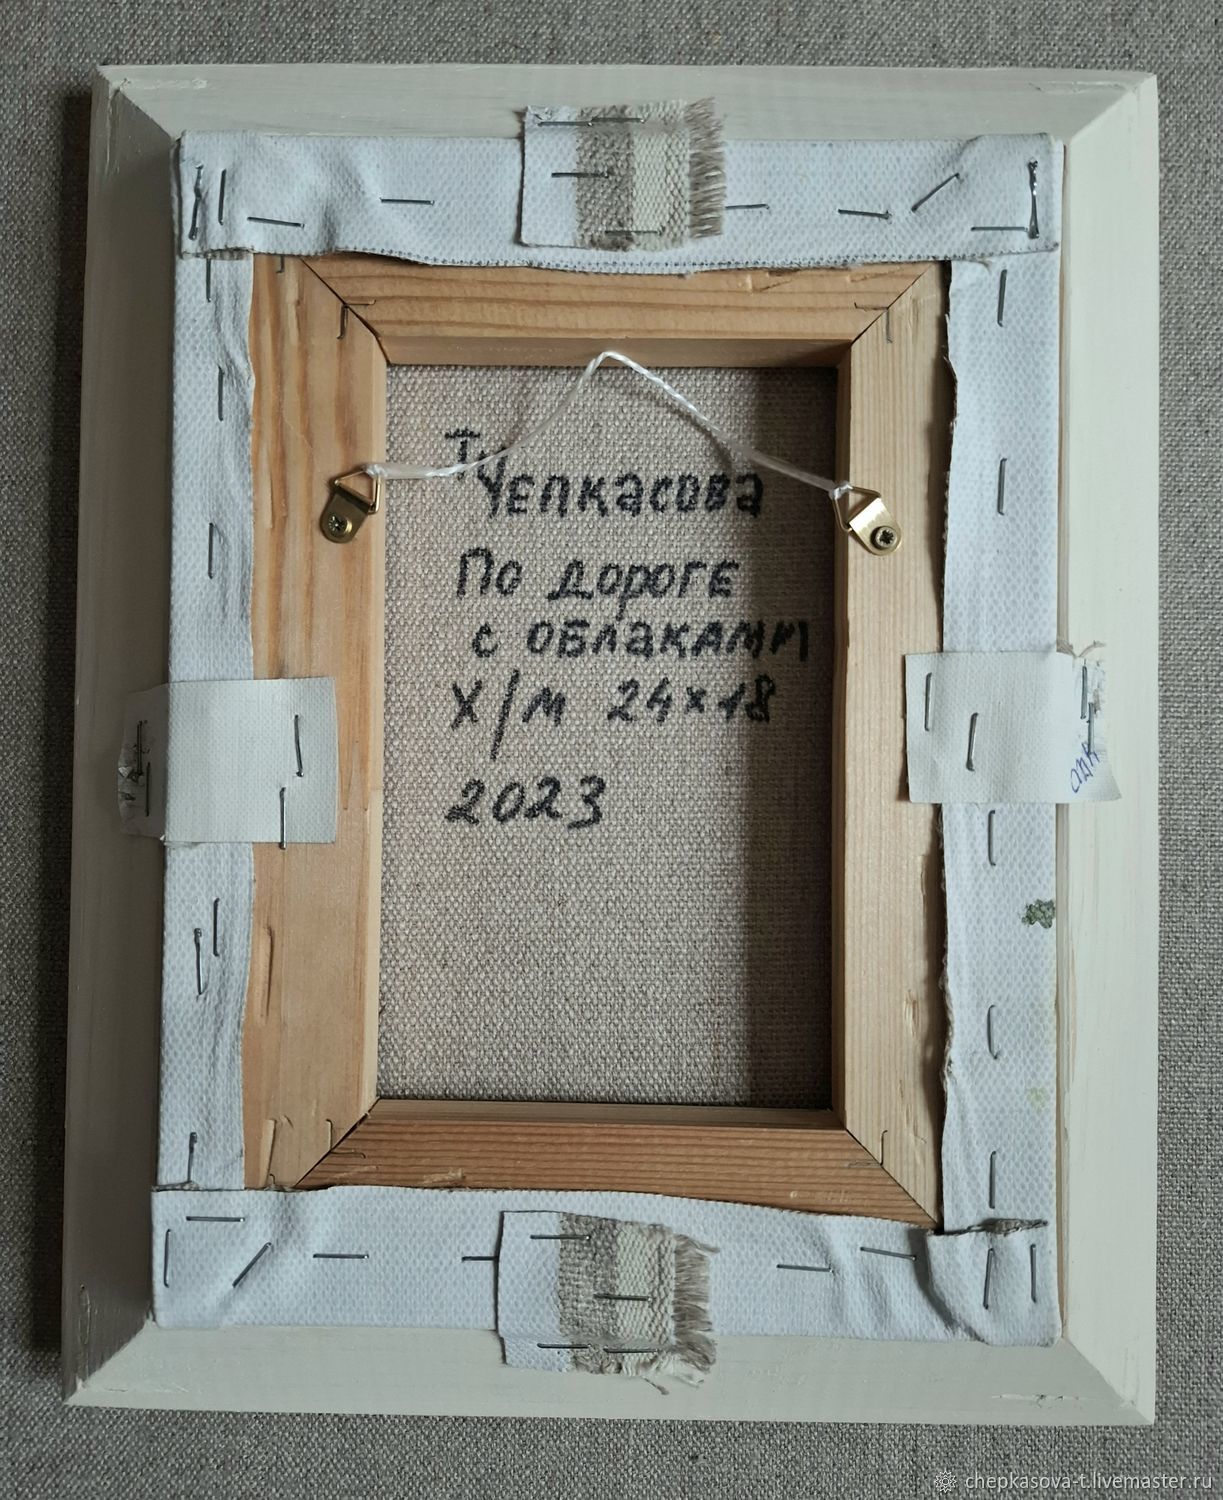 Т Чепкасова
По дороге
с облаками
Х/м 24×18
2023
chepkasova-t.livemaster.ru